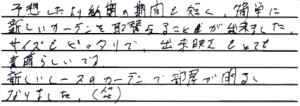 予想したより納期の期間も短く、簡単に
新しいカーテンを取替えることが出来ました。
サイズもピッタリで、出来映えもとても
素晴らしいです。
新しいレースのカーテンで部屋が明るく
なりました。(笑)